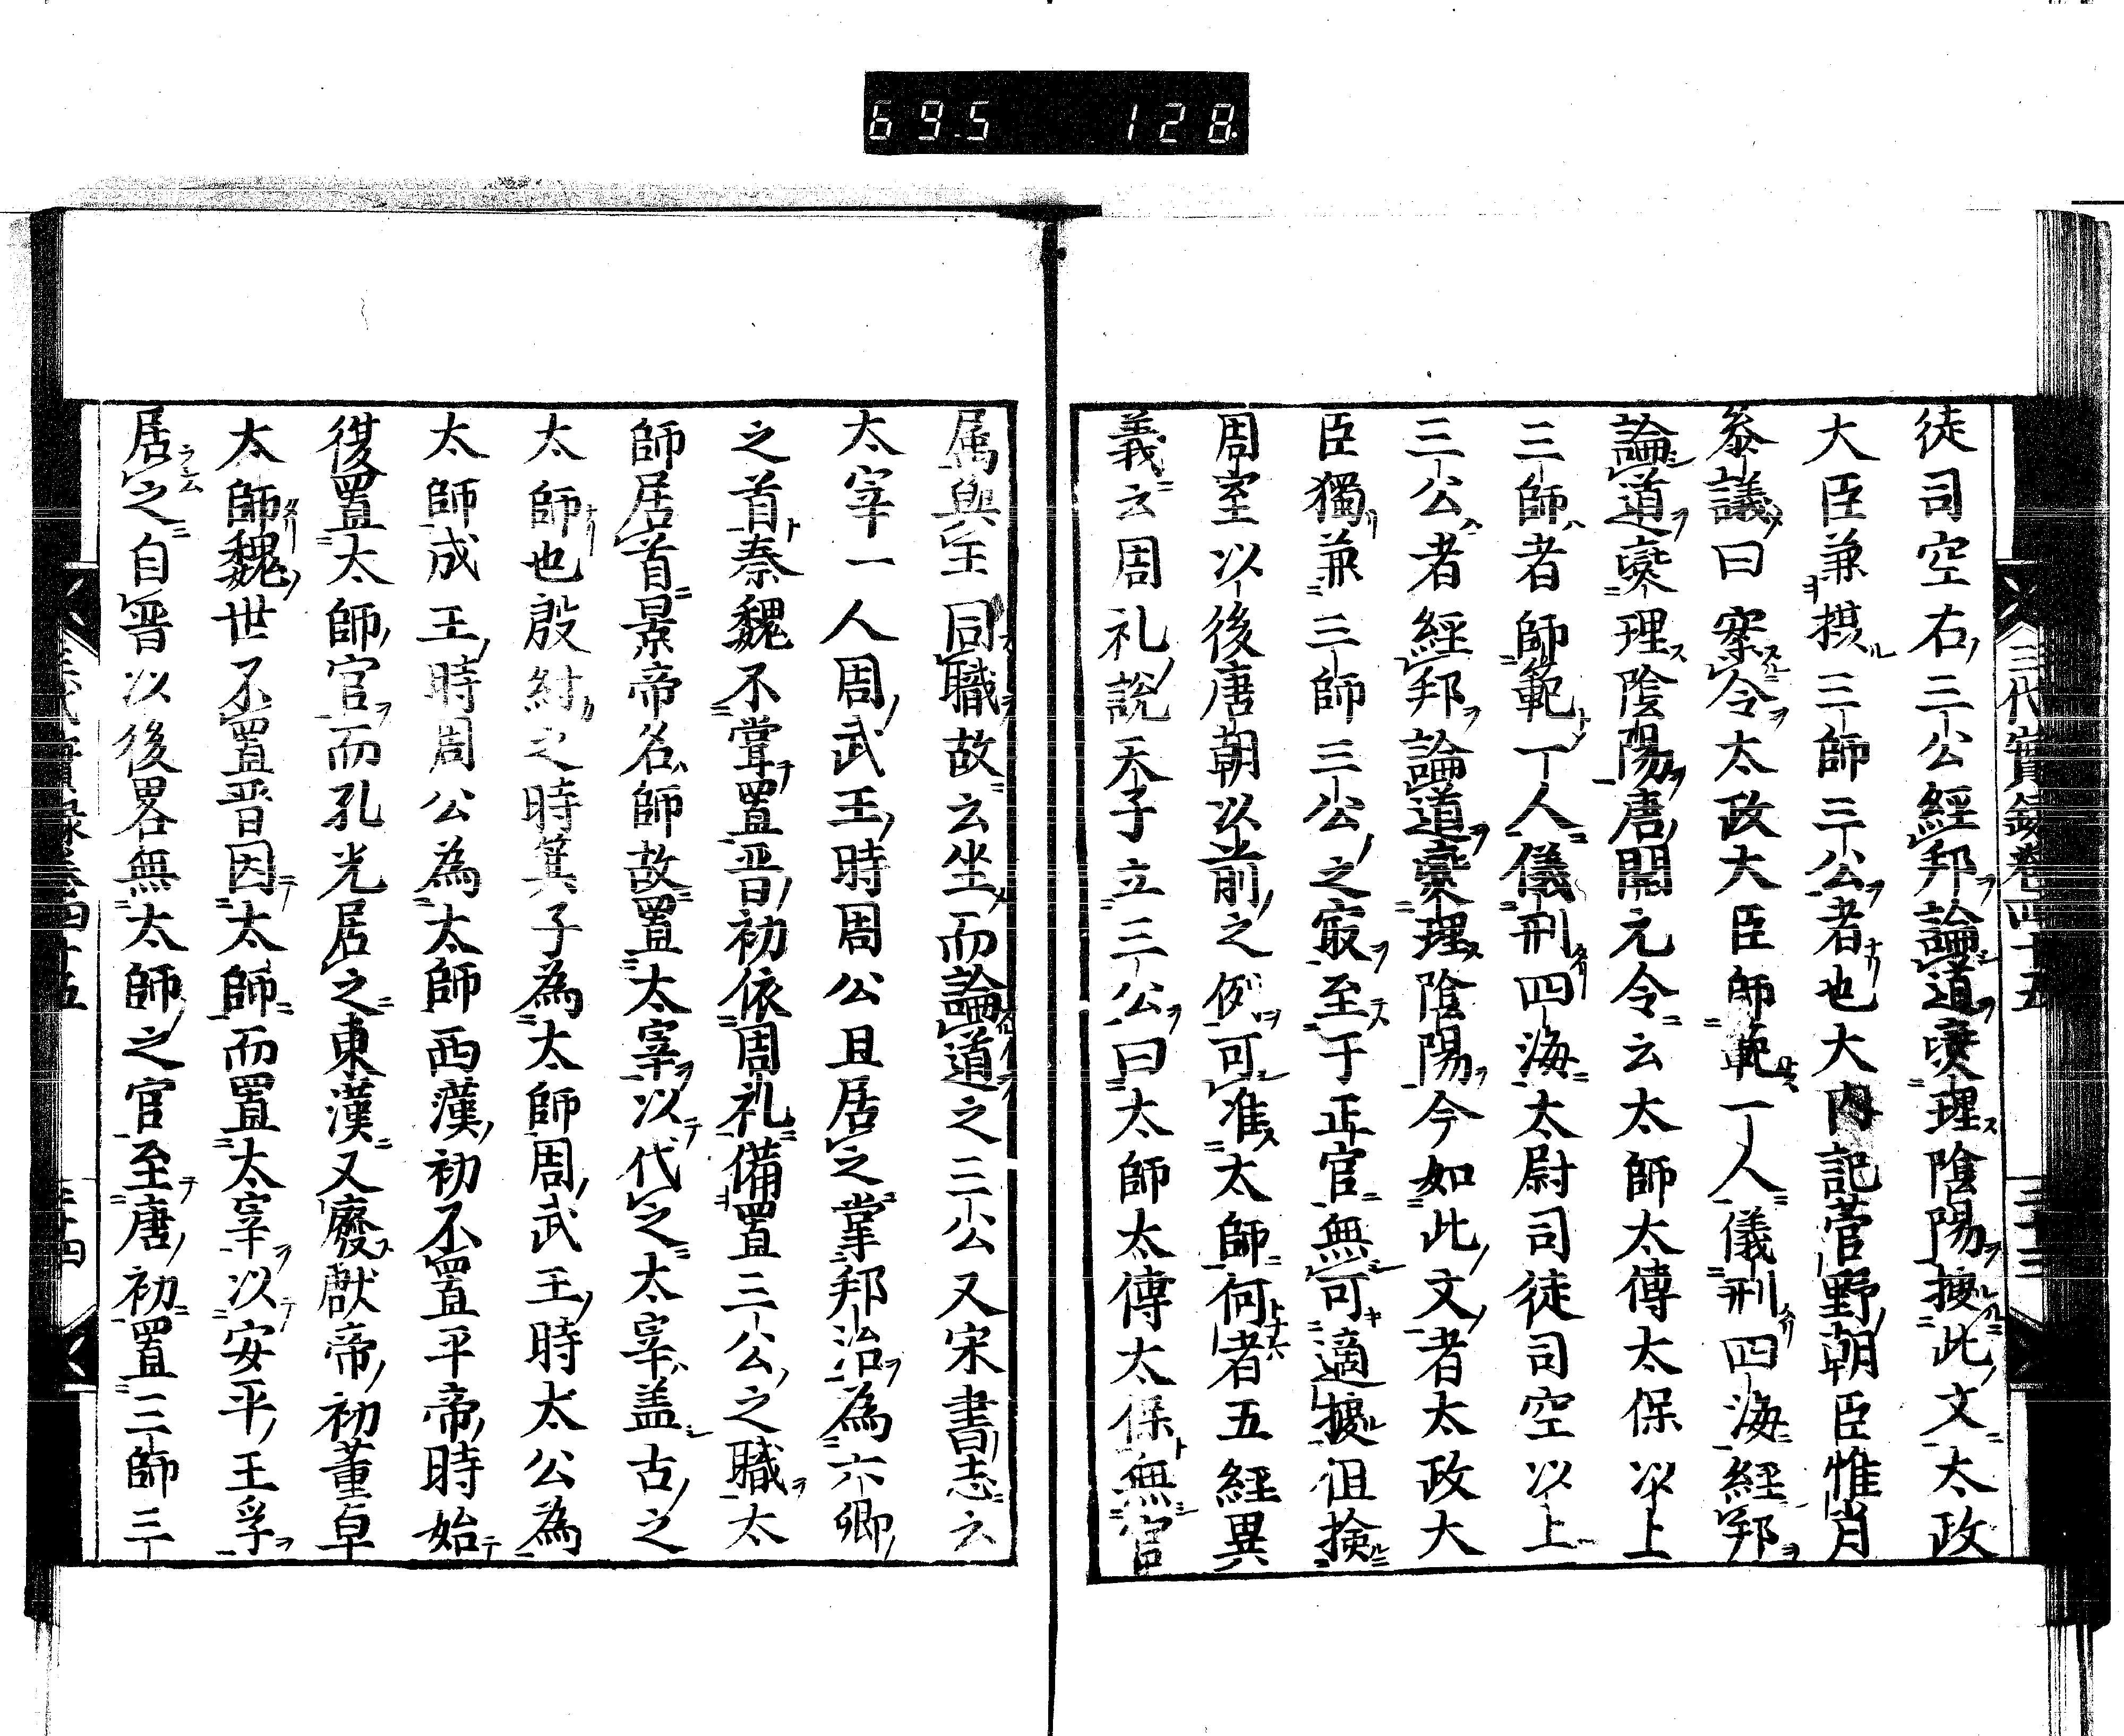 69.5 128.
三代實録卷四十五 三十三
徒司空右三公經邦論道燮理陰陽據此文太政
大臣兼摂三師三公者也大内記菅野朝臣惟肖
叅議曰案令太政大臣師範一人儀刑四海經邦
論道燮理陰陽唐開元令云太師太傅太保以上
三師者師範一人儀刑四海太尉司徒司空以上
三公者經邦論道燮理陰陽今如此文者太政大
臣獨兼三師三公之㝡至于正官無可適據但撿
周室以後唐朝以前之例可准太師何者五經異
義云周礼説天子立三公曰太師太傅太保無官
属與王同職故云坐而論道之三公又宋書志云
太宰一人周武王時周公且居之掌邦治為六卿
之首秦魏不甞置晋初依周礼備置三公之職太
師居首景帝名師故置太宰以代之太宰盖古之
太師也殷紂之時箕子為太師周武王時太公為
太師成王時周公為太師西漢初不置平帝時始
復置太師官而孔光居之東漢又廢献帝初董卓
太師魏世不置晋因太師而置太宰以安平王孚
居之自晋以後畧無太師之官至唐初置三師三
三代實録卷四十五 三十四